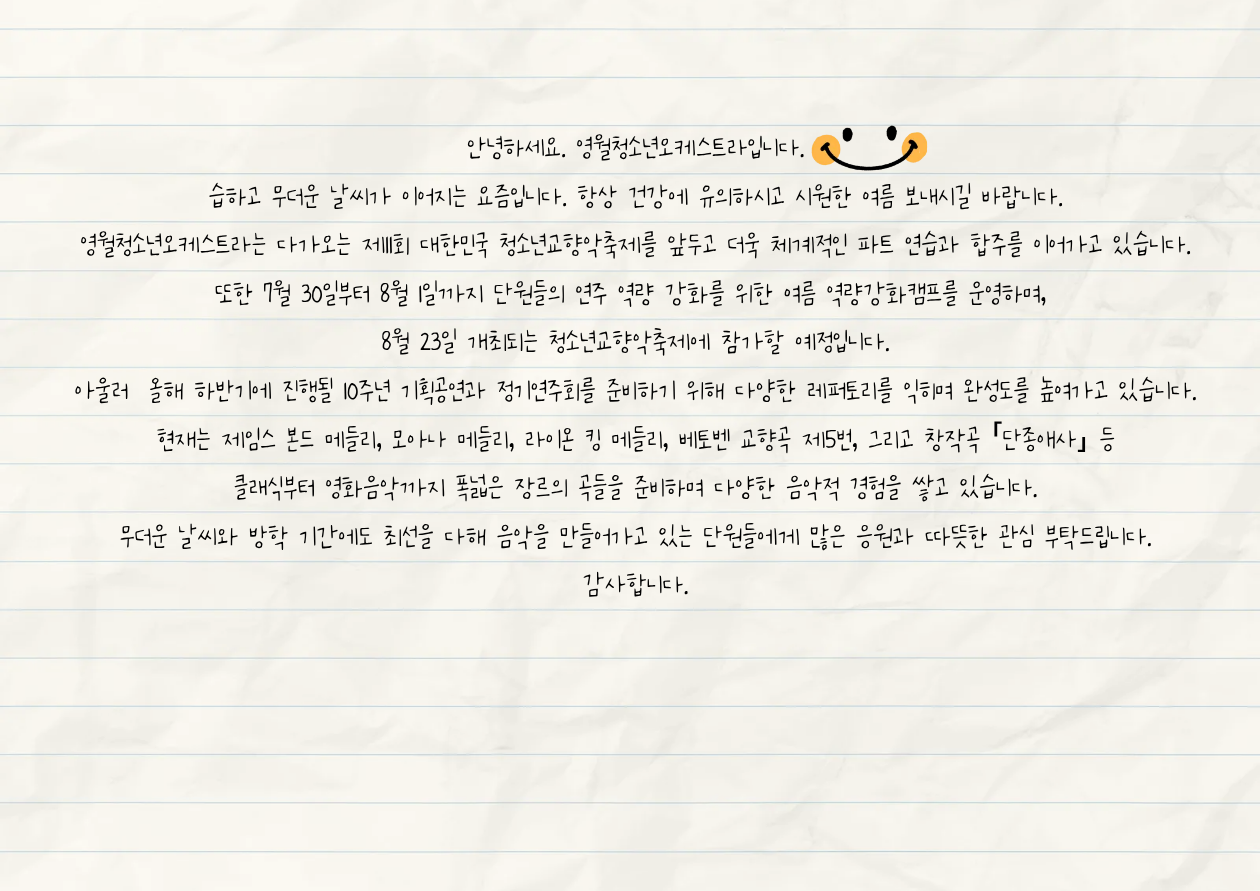 안녕하세요. 영월청소년오케스트라입니다.
습하고 무더운 날씨가 이어지는 요즘입니다. 항상 건강에 유의하시고 시원한 여름 보내시길 바랍니다.
영월청소년오케스트라는 다가오는 제111회 대한민국 청소년교향악축제를 앞두고 더욱 체계적인 파트 연습과 합주를 이어가고 있습니다.
또한 7월 30일부터 8월 1일까지 단원들의 연주 역량 강화를 위한 여름 역량강화캠프를 운영하며,
8월 23일 개최되는 청소년교향악축제에 참가할 예정입니다.
아울러 올해 하반기에 진행될 10주년 기획공연과 정기연주회를 준비하기 위해 다양한 레퍼토리를 익히며 완성도를 높여가고 있습니다.
현재는 제임스 본드 메들리, 모아나 메들리, 라이온 킹 메들리, 베토벤 교향곡 제5번, 그리고 창작곡 『단종애사』 등
클래식부터 영화음악까지 폭넓은 장르의 곡들을 준비하며 다양한 음악적 경험을 쌓고 있습니다.
무더운 날씨와 방학 기간에도 최선을 다해 음악을 만들어가고 있는 단원들에게 많은 응원과 따뜻한 관심 부탁드립니다.
감사합니다.